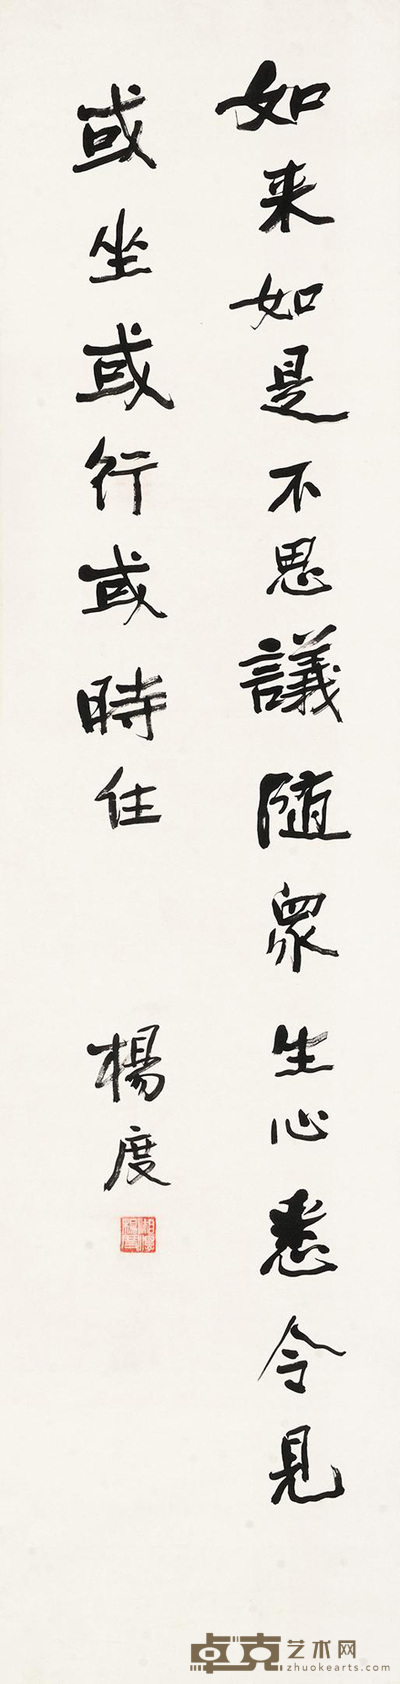 如来如是不思議隨眾生心悉令見
或坐或行或時住
楊度
卓克艺术网
zhuokearts.com